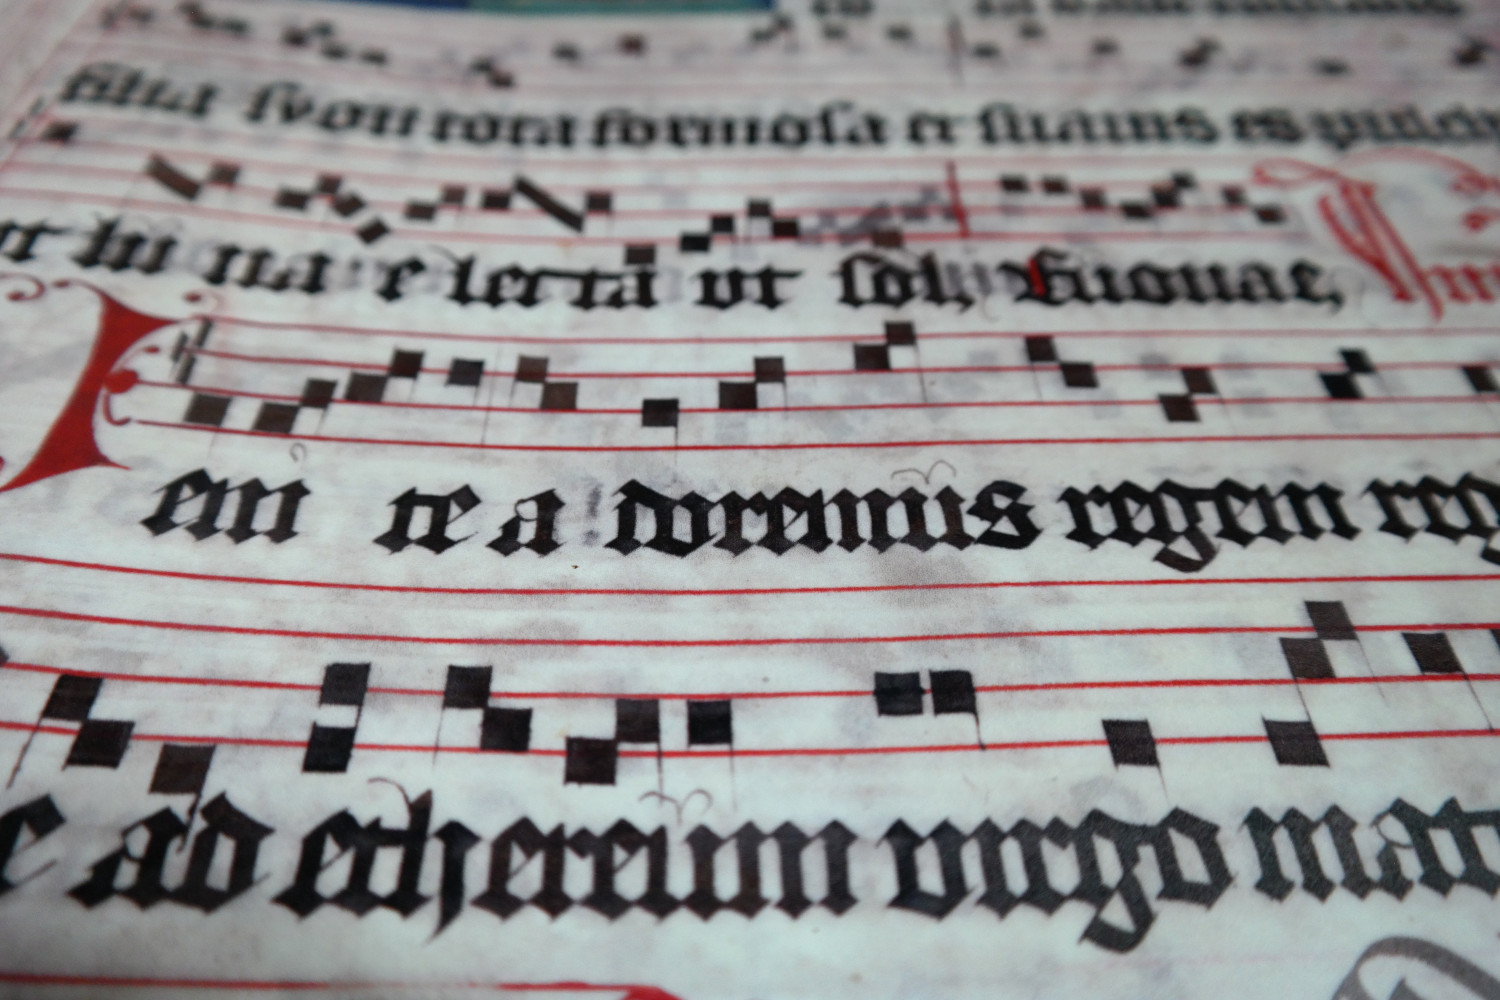 filia syon tota formosa et suauis es pulch
ut lu na e lecta vt sol, Euouae,
eni te a doremus regem reg
ad ethereum virgo mat